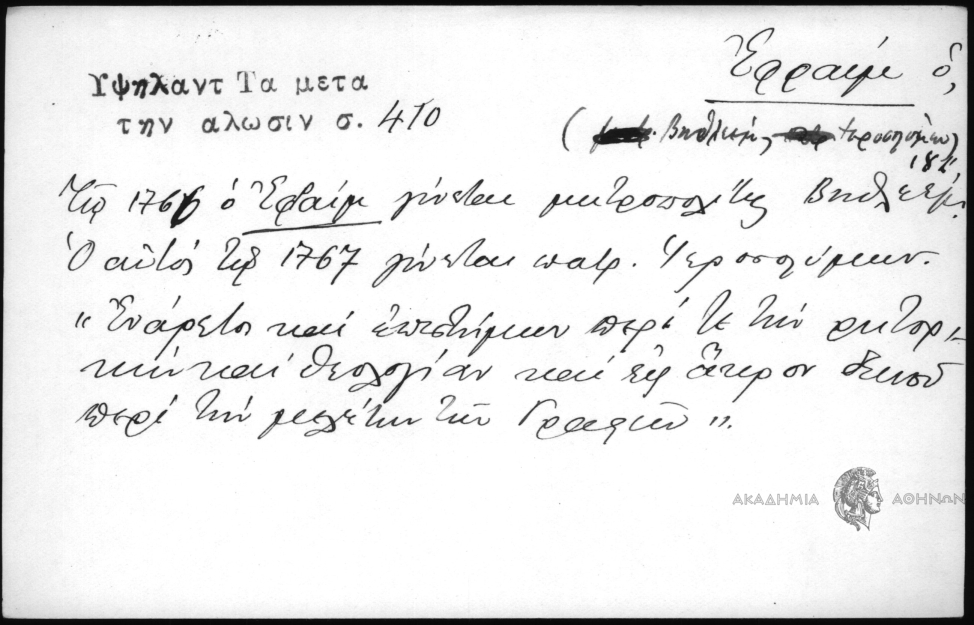 Ἐφραίμ ὁ,
Υψηλαντ Τα μετα
την αλωσιν σ. 410
( Βηθλεέμ, Ἱεροσολύμων)
18
Τῷ 1766 ὁ Ἐφραίμ γίνεται μητροπολίτης Βηθλεέμ.
Ὁ αὐτός τῷ 1767 γίνεται πατρ. Ἱεροσολύμων.
"Ἐνάρετος καί ἐπιστήμων περί τε τήν ρητορι-
κήν καί θεολογίαν καί εἰς ἄκρον
περί τήν μελέτην τῶν Γραφῶν".
ΑΚΑΔΗΜΙΑ ΑΘΗΝΩΝ